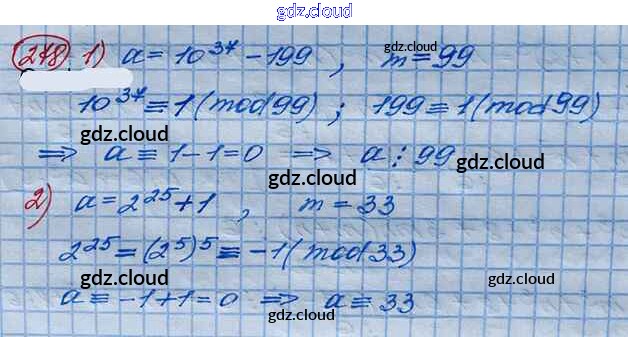 gdz.cloud
278 1) a = 10³⁷ - 199 , m = 99
gdz.cloud
10³⁷ ≡ 1 (mod 99) ; 199 ≡ 1 (mod 99)
gdz.cloud
gdz.cloud
⇒ a ≡ 1 - 1 = 0 ⇒ a ⋮ 99
gdz.cloud
gdz.cloud
2) a = 2²⁵ + 1 , m = 33
gdz.cloud
2²⁵ = (2⁵)⁵ ≡ -1 (mod 33)
gdz.cloud
gdz.cloud
a ≡ -1 + 1 = 0 ⇒ a ≡ 33
gdz.cloud
gdz.cloud